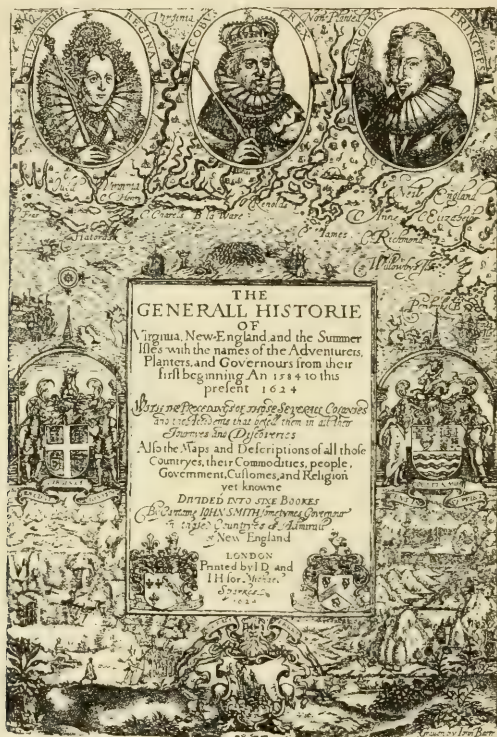 ELIZABETHA REGINA
IACOBVS REX
CAROLVS PRINCEPS
Virginia
Now Planted
Virginia
New England
C Anne
C Elizabeth
C James
C Richmond
THE
GENERALL HISTORIE
OF
Virginia, New-England, and the Summer
Isles with the names of the Adventurers,
Planters, and Governours from their
first beginning An 1584 to this
present 1624
With the Procedings of those Severall Colonies
and the Accidents that befell them in all their
Journyes and Discoveries
Also the Maps and Descriptions of all those
Countryes, their Commodities, people,
Government, Customes, and Religion
yet knowne
DIVIDED INTO SIXE BOOKES
By Captaine IOHN SMITH sometymes Governour
in those Countryes & Admirall
of New England
LONDON
Printed by I D and
I H for Michael
Sparkes
1624
Graven by Iohn Barra